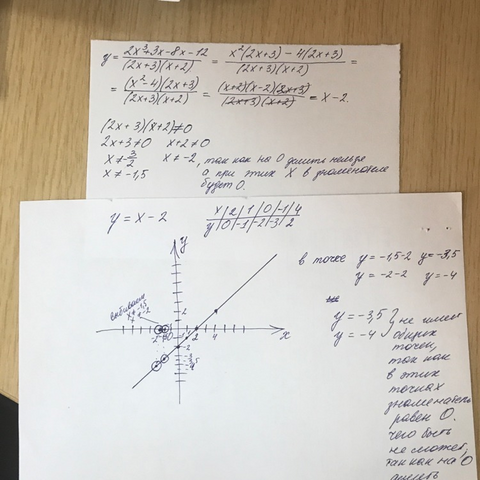 y = (2x³+3x-8x-12)/((2x+3)(x+2)) = (x²(2x+3) - 4(2x+3))/((2x+3)(x+2)) =
= ((x²-4)(2x+3))/((2x+3)(x+2)) = ((x+2)(x-2)(2x+3))/((2x+3)(x+2)) = x-2.
(2x+3)(x+2)≠0
2x+3≠0 x+2≠0
x≠-3/2 x≠-2, так как на 0 делить нельзя
x≠-1,5 а при этих x в знаменателе
будет 0.
y = x-2
x|2|1|0|-1|4
y|0|-1|-2|-3|2
в точке y=-1,5-2 y=-3,5
y=-2-2 y=-4
y=-3,5 } не имеет
y=-4 общих
точек,
так как
в этих
точках
знаменатель
равен 0.
чего быть
не может,
так как на 0
делить
y
выбиваем
x≠-1,5
x≠-2
-2
0
2
x
2